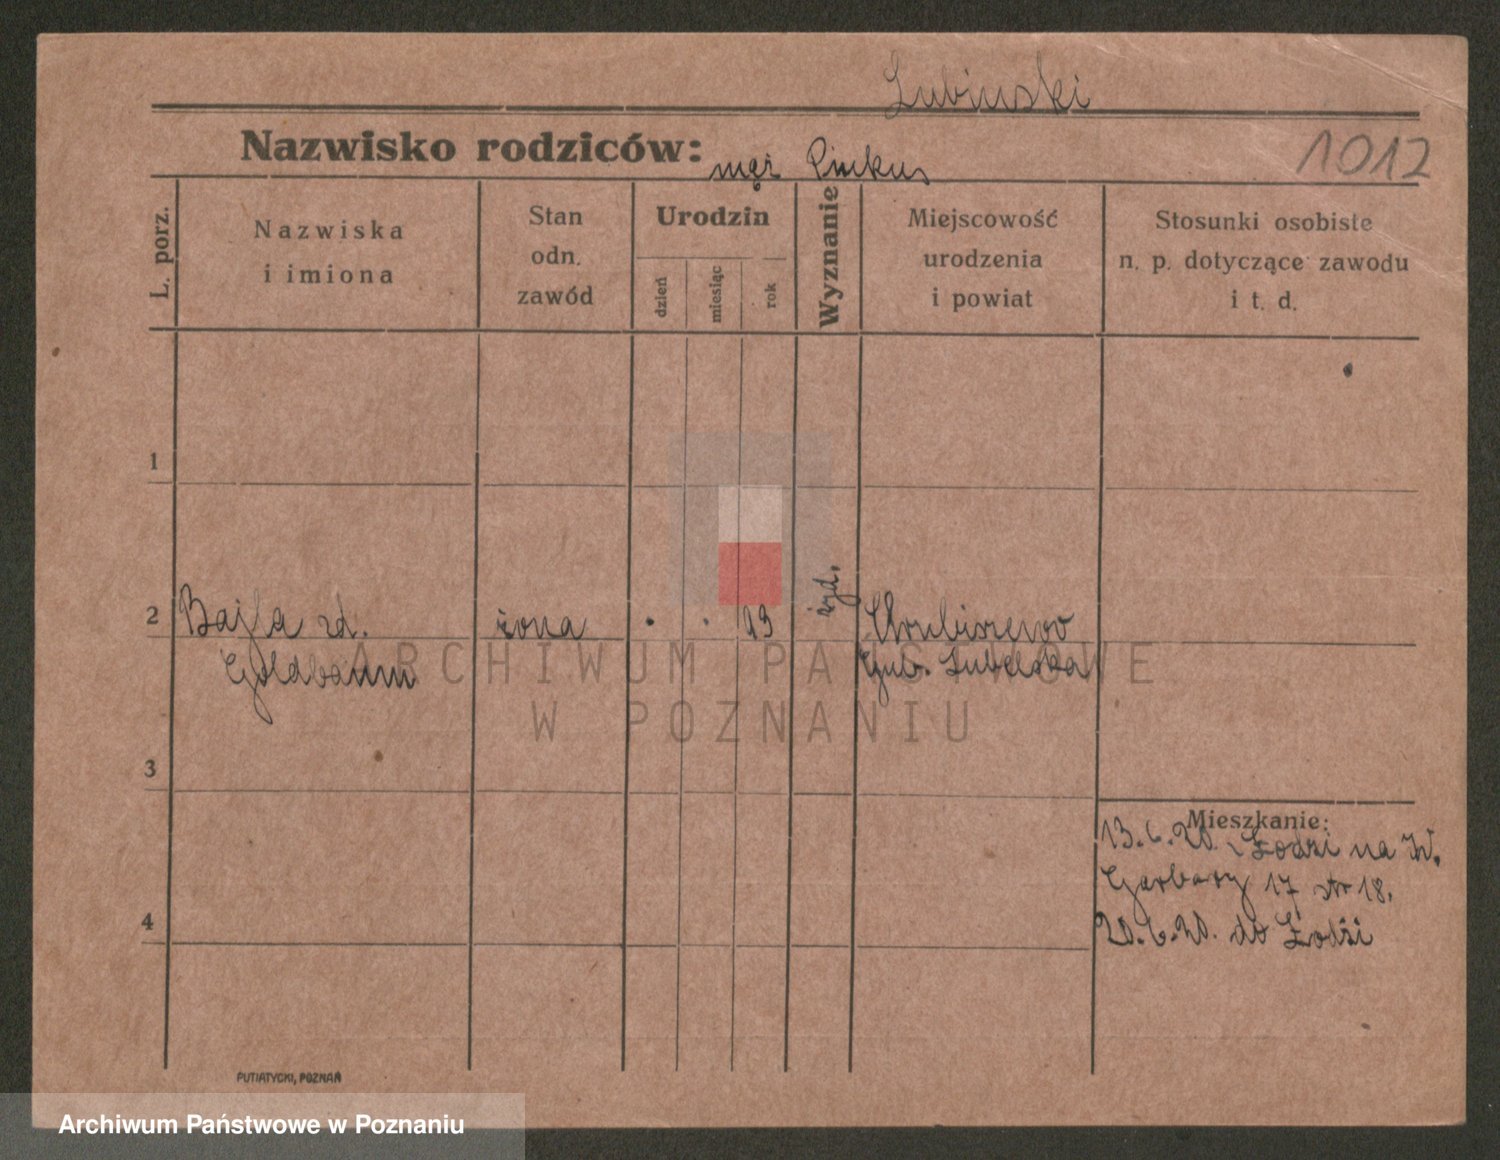 Lubinski
Nazwisko rodziców: mąż Pinkus
1012
L. porz.
Nazwiska
i imiona
Stan
odn.
zawód
Urodzin
dzień
miesiąc
rok
Wyznanie
Miejscowość
urodzenia
i powiat
Stosunki osobiste
n. p. dotyczące zawodu
i t. d.
1
2
Bajla zd. żona . . 93 żyd.
Goldbaum
Gub. Lubelska
ARCHIWUM PAŃSTWOWE
W POZNANIU
3
Mieszkanie:
13.6.20. z Łodzi na W.
Garbary 17 nr 18.
4
20.6.20. do Łodzi
PUTIATYCKI, POZNAŃ
Archiwum Państwowe w Poznaniu